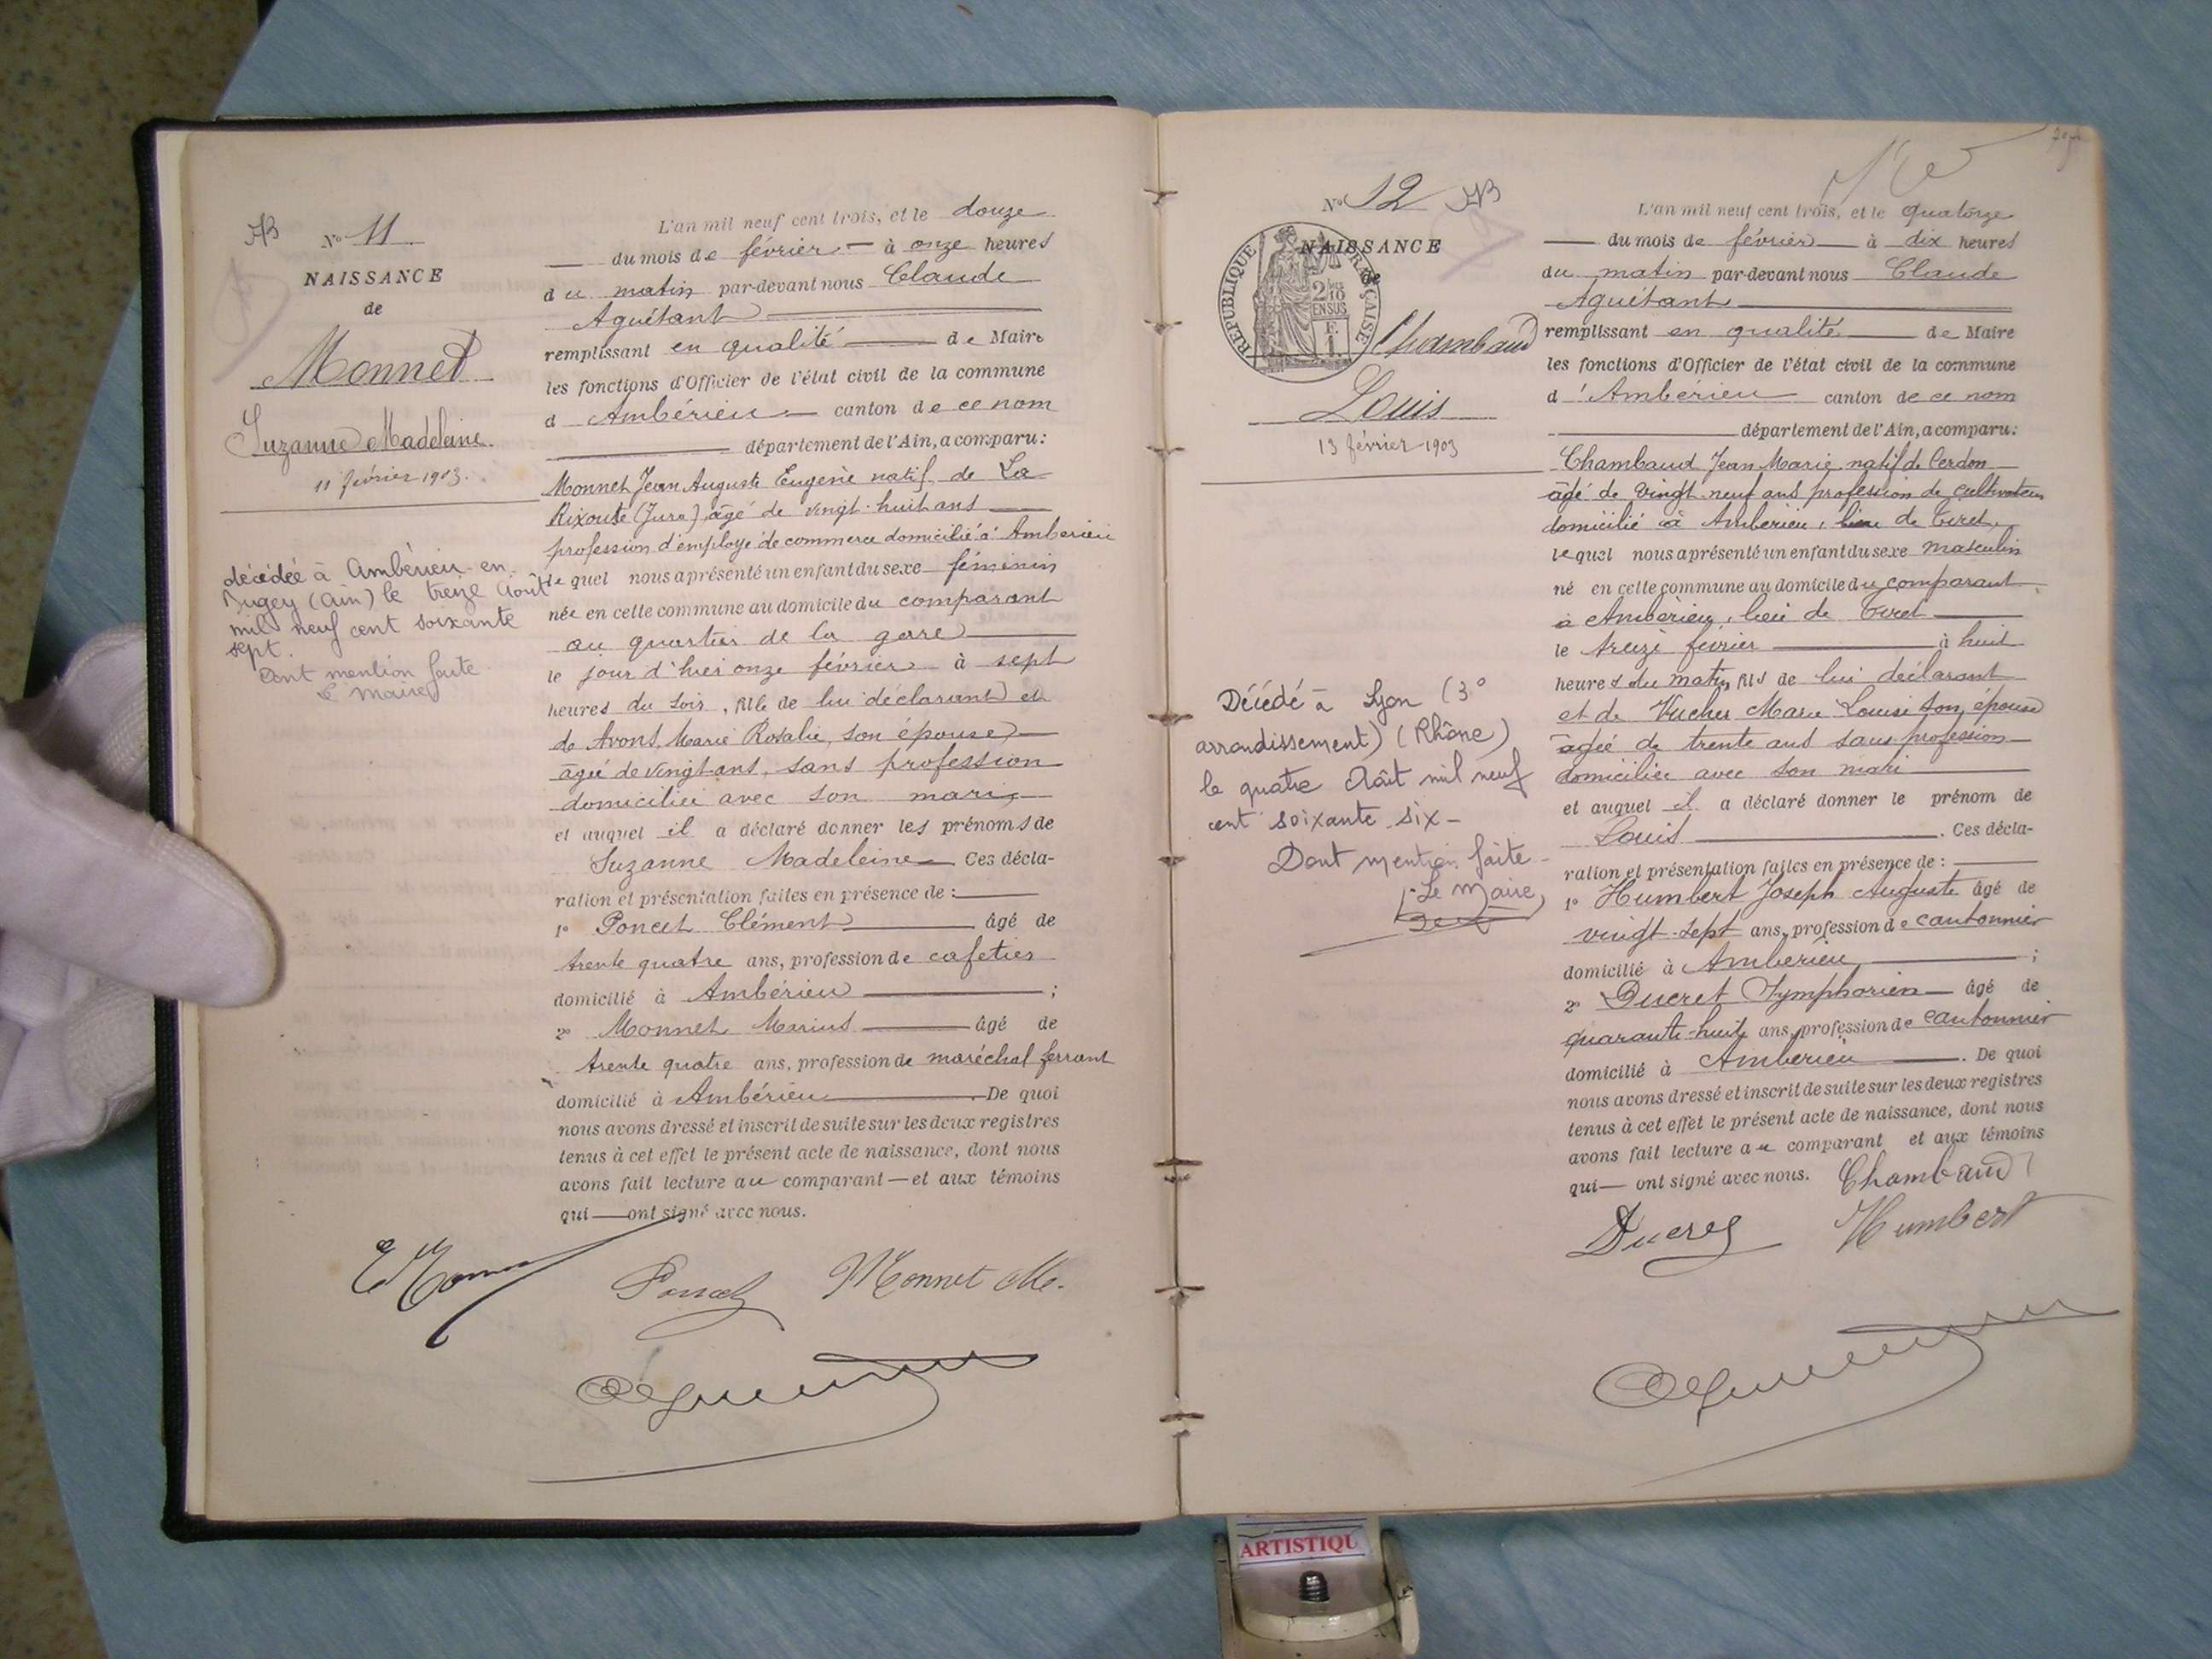 N° 11
NAISSANCE
de
Monnet
Suzanne Madeleine
11 février 1903.
décédée à Ambérieu-en-
Bugey (Ain) le treize Août
mil neuf cent soixante
sept.
Dont mention faite
Le Maire
L'an mil neuf cent trois, et le douze
du mois de février à onze heures
du matin par-devant nous Claude
Aguétant
remplissant en qualité de Maire
les fonctions d'Officier de l'état civil de la commune
d Ambérieu canton de ce nom
département de l'Ain, a comparu:
Monnet Jean Auguste Eugène natif de La
Rixouse (Jura) âgé de vingt-huit ans
profession d'employé de commerce domicilié à Ambérieu
le quel nous a présenté un enfant du sexe féminin
née en cette commune au domicile du comparant
au quartier de la gare
le jour d'hier onze février à sept
heures du soir, fille de lui déclarant et
de Avons Marie Rosalie, son épouse
âgée de vingt ans, sans profession
domiciliée avec son mari
et auquel il a déclaré donner les prénoms de
Suzanne Madeleine Ces décla-
ration et présentation faites en présence de :
1° Poncet Clément âgé de
trente quatre ans, profession de cafetier
domicilié à Ambérieu ;
2° Monnet Marius âgé de
trente quatre ans, profession de maréchal ferrant
domicilié à Ambérieu. De quoi
nous avons dressé et inscrit de suite sur les deux registres
tenus à cet effet le présent acte de naissance, dont nous
avons fait lecture au comparant — et aux témoins
qui — ont signé avec nous.
E Monnet Poncet Monnet M.
N° 12
NAISSANCE
de
REPUBLIQUE FRANÇAISE
2/10
EN SUS
F.
1.
Chambaud
Louis
13 février 1903
Décédé à Lyon (3°
arrondissement) (Rhône)
le quatre Août mil neuf
cent soixante six -
Dont mention faite -
Le Maire,
L'an mil neuf cent trois, et le quatorze
du mois de février à dix heures
du matin par-devant nous Claude
Aguétant
remplissant en qualité de Maire
les fonctions d'Officier de l'état civil de la commune
d'Ambérieu canton de ce nom
département de l'Ain, a comparu:
Chambaud Jean Marie natif de Cerdon
âgé de vingt-neuf ans profession de cultivateur
domicilié à Ambérieu, lieu de Tiret,
le quel nous a présenté un enfant du sexe masculin
né en cette commune au domicile du comparant
à Ambérieu, lieu de Tiret
le treize février à huit
heures du matin, fils de lui déclarant
et de Vucher Marie Louise son épouse
âgée de trente ans sans profession
domiciliée avec son mari
et auquel il a déclaré donner le prénom de
Louis. Ces décla-
ration et présentation faites en présence de :
1° Humbert Joseph Auguste âgé de
vingt-sept ans, profession de cantonnier
domicilié à Ambérieu ;
2° Ducret Symphorien âgé de
quarante-huit ans, profession de cantonnier
domicilié à Ambérieu. De quoi
nous avons dressé et inscrit de suite sur les deux registres
tenus à cet effet le présent acte de naissance, dont nous
avons fait lecture au comparant et aux témoins
qui — ont signé avec nous. Chambaud
Ducret Humbert
ARTISTIQU